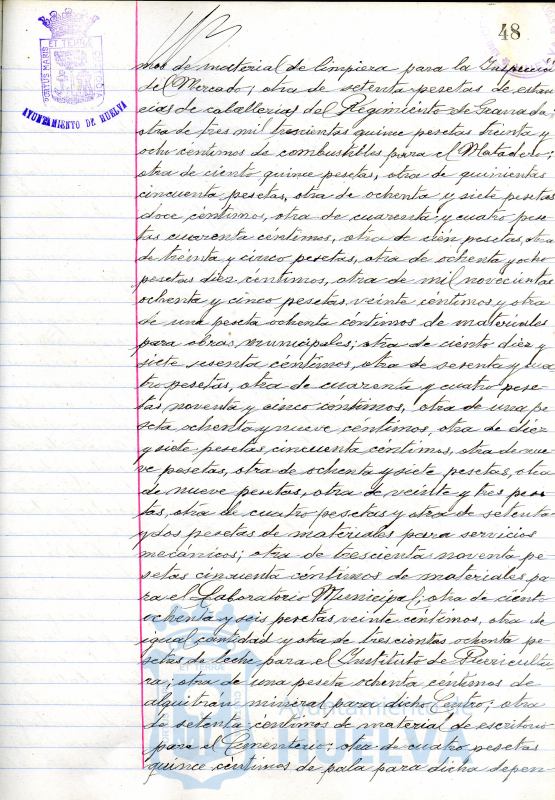 48
PORTUS MARIS ET TERRAE CUSTODIA
AYUNTAMIENTO DE HUELVA
mos de material de limpiera para la Inspección
del Mercado; otra de setenta pesetas de estan-
cias de caballerias del Regimiento de Granada;
otra de tres mil trescientas quince pesetas treinta y
ocho céntimos de combustibles para el Matadero;
otra de ciento quince pesetas, otra de quinientas
cincuenta pesetas, otra de ochenta y siete pesetas
doce céntimos, otra de cuarenta y cuatro pese-
tas cuarenta céntimos, otra de cien pesetas, otra
de treinta y cinco pesetas, otra de ochenta y ocho
pesetas diez céntimos, otra de mil novecientas
ochenta y cinco pesetas veinte céntimos y otra
de una peseta ochenta céntimos de materiales
para obras municipales; otra de ciento diez y
siete sesenta céntimos, otra de sesenta y cua-
tro pesetas, otra de cuarenta y cuatro pese-
tas noventa y cinco céntimos, otra de una pe-
seta ochenta y nueve céntimos, otra de diez
y siete pesetas cincuenta céntimos, otra de nue-
ve pesetas, otra de ochenta y siete pesetas, otra
de nueve pesetas, otra de veinte y tres pese-
tas, otra de cuatro pesetas y otra de setenta
y dos pesetas de materiales para servicios
mecánicos; otra de trescienta noventa pe-
setas cincuenta céntimos de materiales pa-
ra el Laboratorio Municipal; otra de ciento
ochenta y seis pesetas veinte céntimos, otra de
igual cantidad y otra de trescientas ochenta pe-
setas de leche para el Instituto de Puericultu-
ra; otra de una peseta ochenta céntimos de
alquitran mineral para dicho Centro; otra
de setenta céntimos de material de escritorio
para el Cementerio; otra de cuatro pesetas
quince céntimos de pala para dicha depen-
Ayuntamiento de
HUELVA